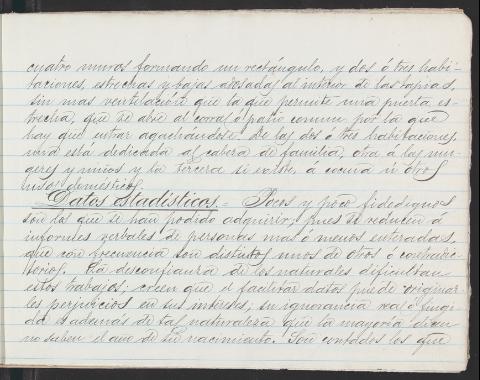 cuatro muros formando un rectángulo, y dos ó tres habi-
taciones, estrechas y bajas, adosadas al interior de las tapias,
sin mas ventilación que la que permite una puerta es-
trecha, que se abre al corral ó patio comun, por la que
hay que entrar agachándose. De las dos ó tres habitaciones,
una está dedicada al cabeza de familia, otra á las mu-
geres y niños y la tercera si existe, á cocina ú otros
usos domesticos.
Datos Stadísticos.- Pocos y poco fidedignos
son los que se han podido adquirir; pues se reducen á
informes verbales de personas mas ó menos enteradas,
que con frecuencia son distintos unos de otros ó contradic-
torios. La desconfianza de los naturales dificultan
estos trabajos; creen que el facilitar datos puede originar
les perjuicios en sus intereses; su ignorancia real ó fingi-
da es además de tal naturaleza que la mayoria dicen
no saben el año de su nacimiento. Son contados los que